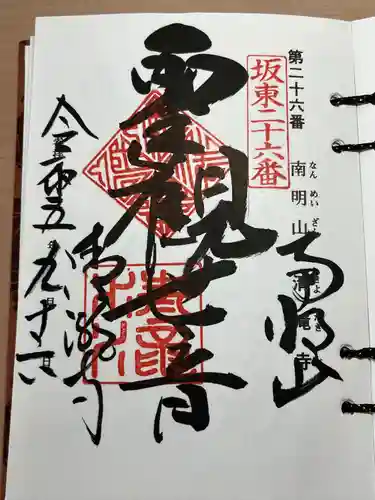 第二十六番 南明山 清滝寺
なん めい ざん
坂東二十六番
南明山
聖観世音
清瀧寺
令和五年九月十六